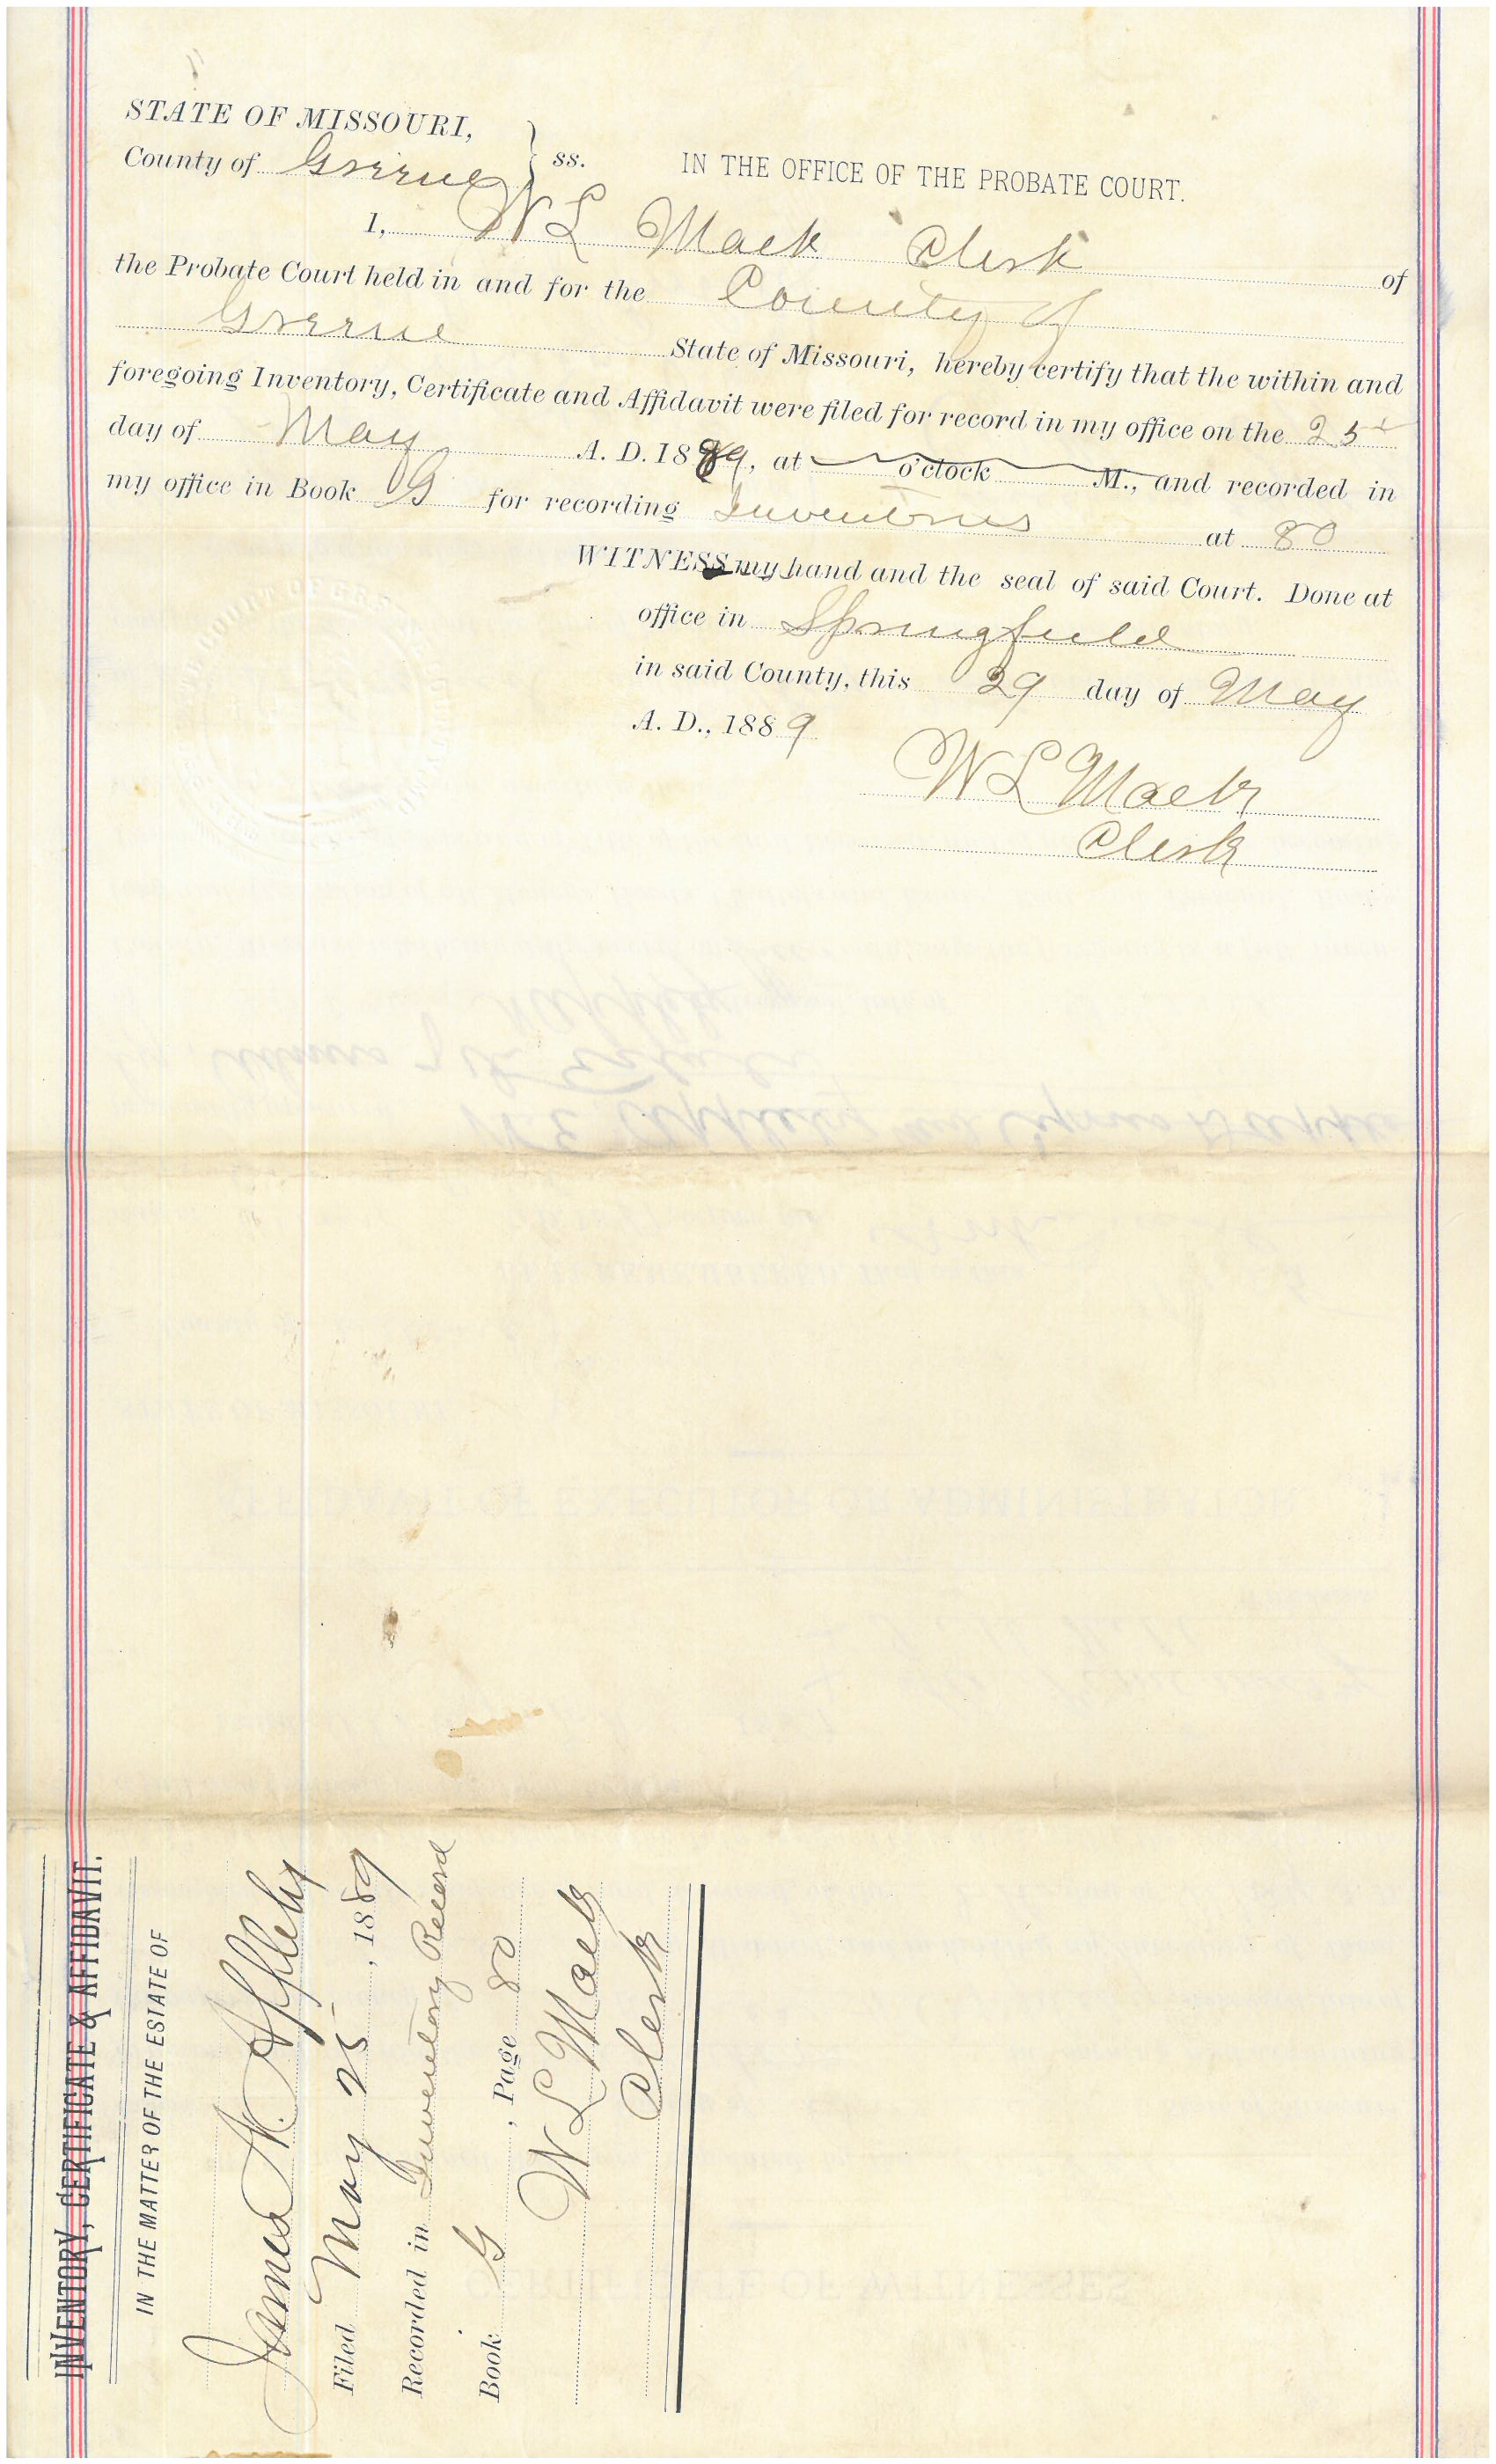 STATE OF MISSOURI,
County of Greene } ss. IN THE OFFICE OF THE PROBATE COURT.
I, W L Mack Clerk of
the Probate Court held in and for the County of
Greene State of Missouri, hereby certify that the within and
foregoing Inventory, Certificate and Affidavit were filed for record in my office on the 25
day of May A. D. 1889, at o'clock M., and recorded in
my office in Book G for recording Inventories at 80
WITNESS my hand and the seal of said Court. Done at
office in Springfield
in said County, this 29 day of May
A. D., 1889
W L Mack
Clerk
INVENTORY, CERTIFICATE & AFFIDAVIT.
IN THE MATTER OF THE ESTATE OF
James N. Appleby
Filed May 25, 1889
Recorded in Inventory Record
Book G, Page 80
W L Mack
Clerk